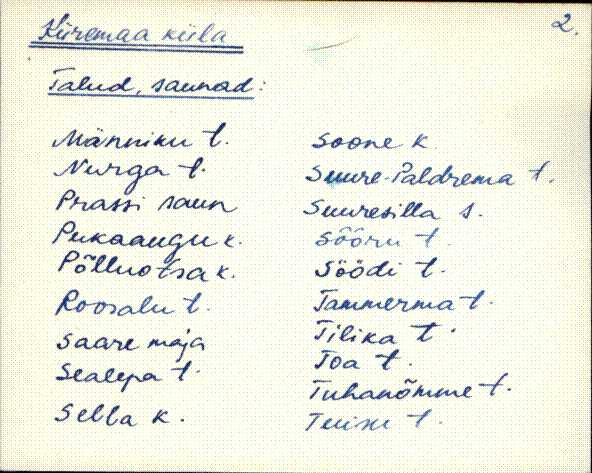 Küremaa küla
2.
Talud, saunad:
Männiku t.
Nurga t.
Prassi saun
Pukaaugu k.
Põlluotsa k.
Roosalu t.
Saare maja
Sealepa t.
Sella k.
Soone k.
Suure-Paldrema t.
Suuresilla s.
Sõõru t.
Söödi t.
Tammerma t.
Tilika t.
Toa t.
Tuhanõmme t.
t.